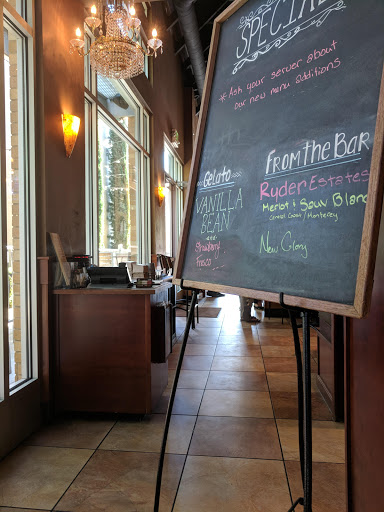 SPECIAL
* Ask your server about
our new menu additions
Gelato
VANILLA
BEAN
and
Strawberry
Fresco
From the Bar
Ryder Estates
Merlot & Sauv Blanc
Central Coast / Monterey
New Glory